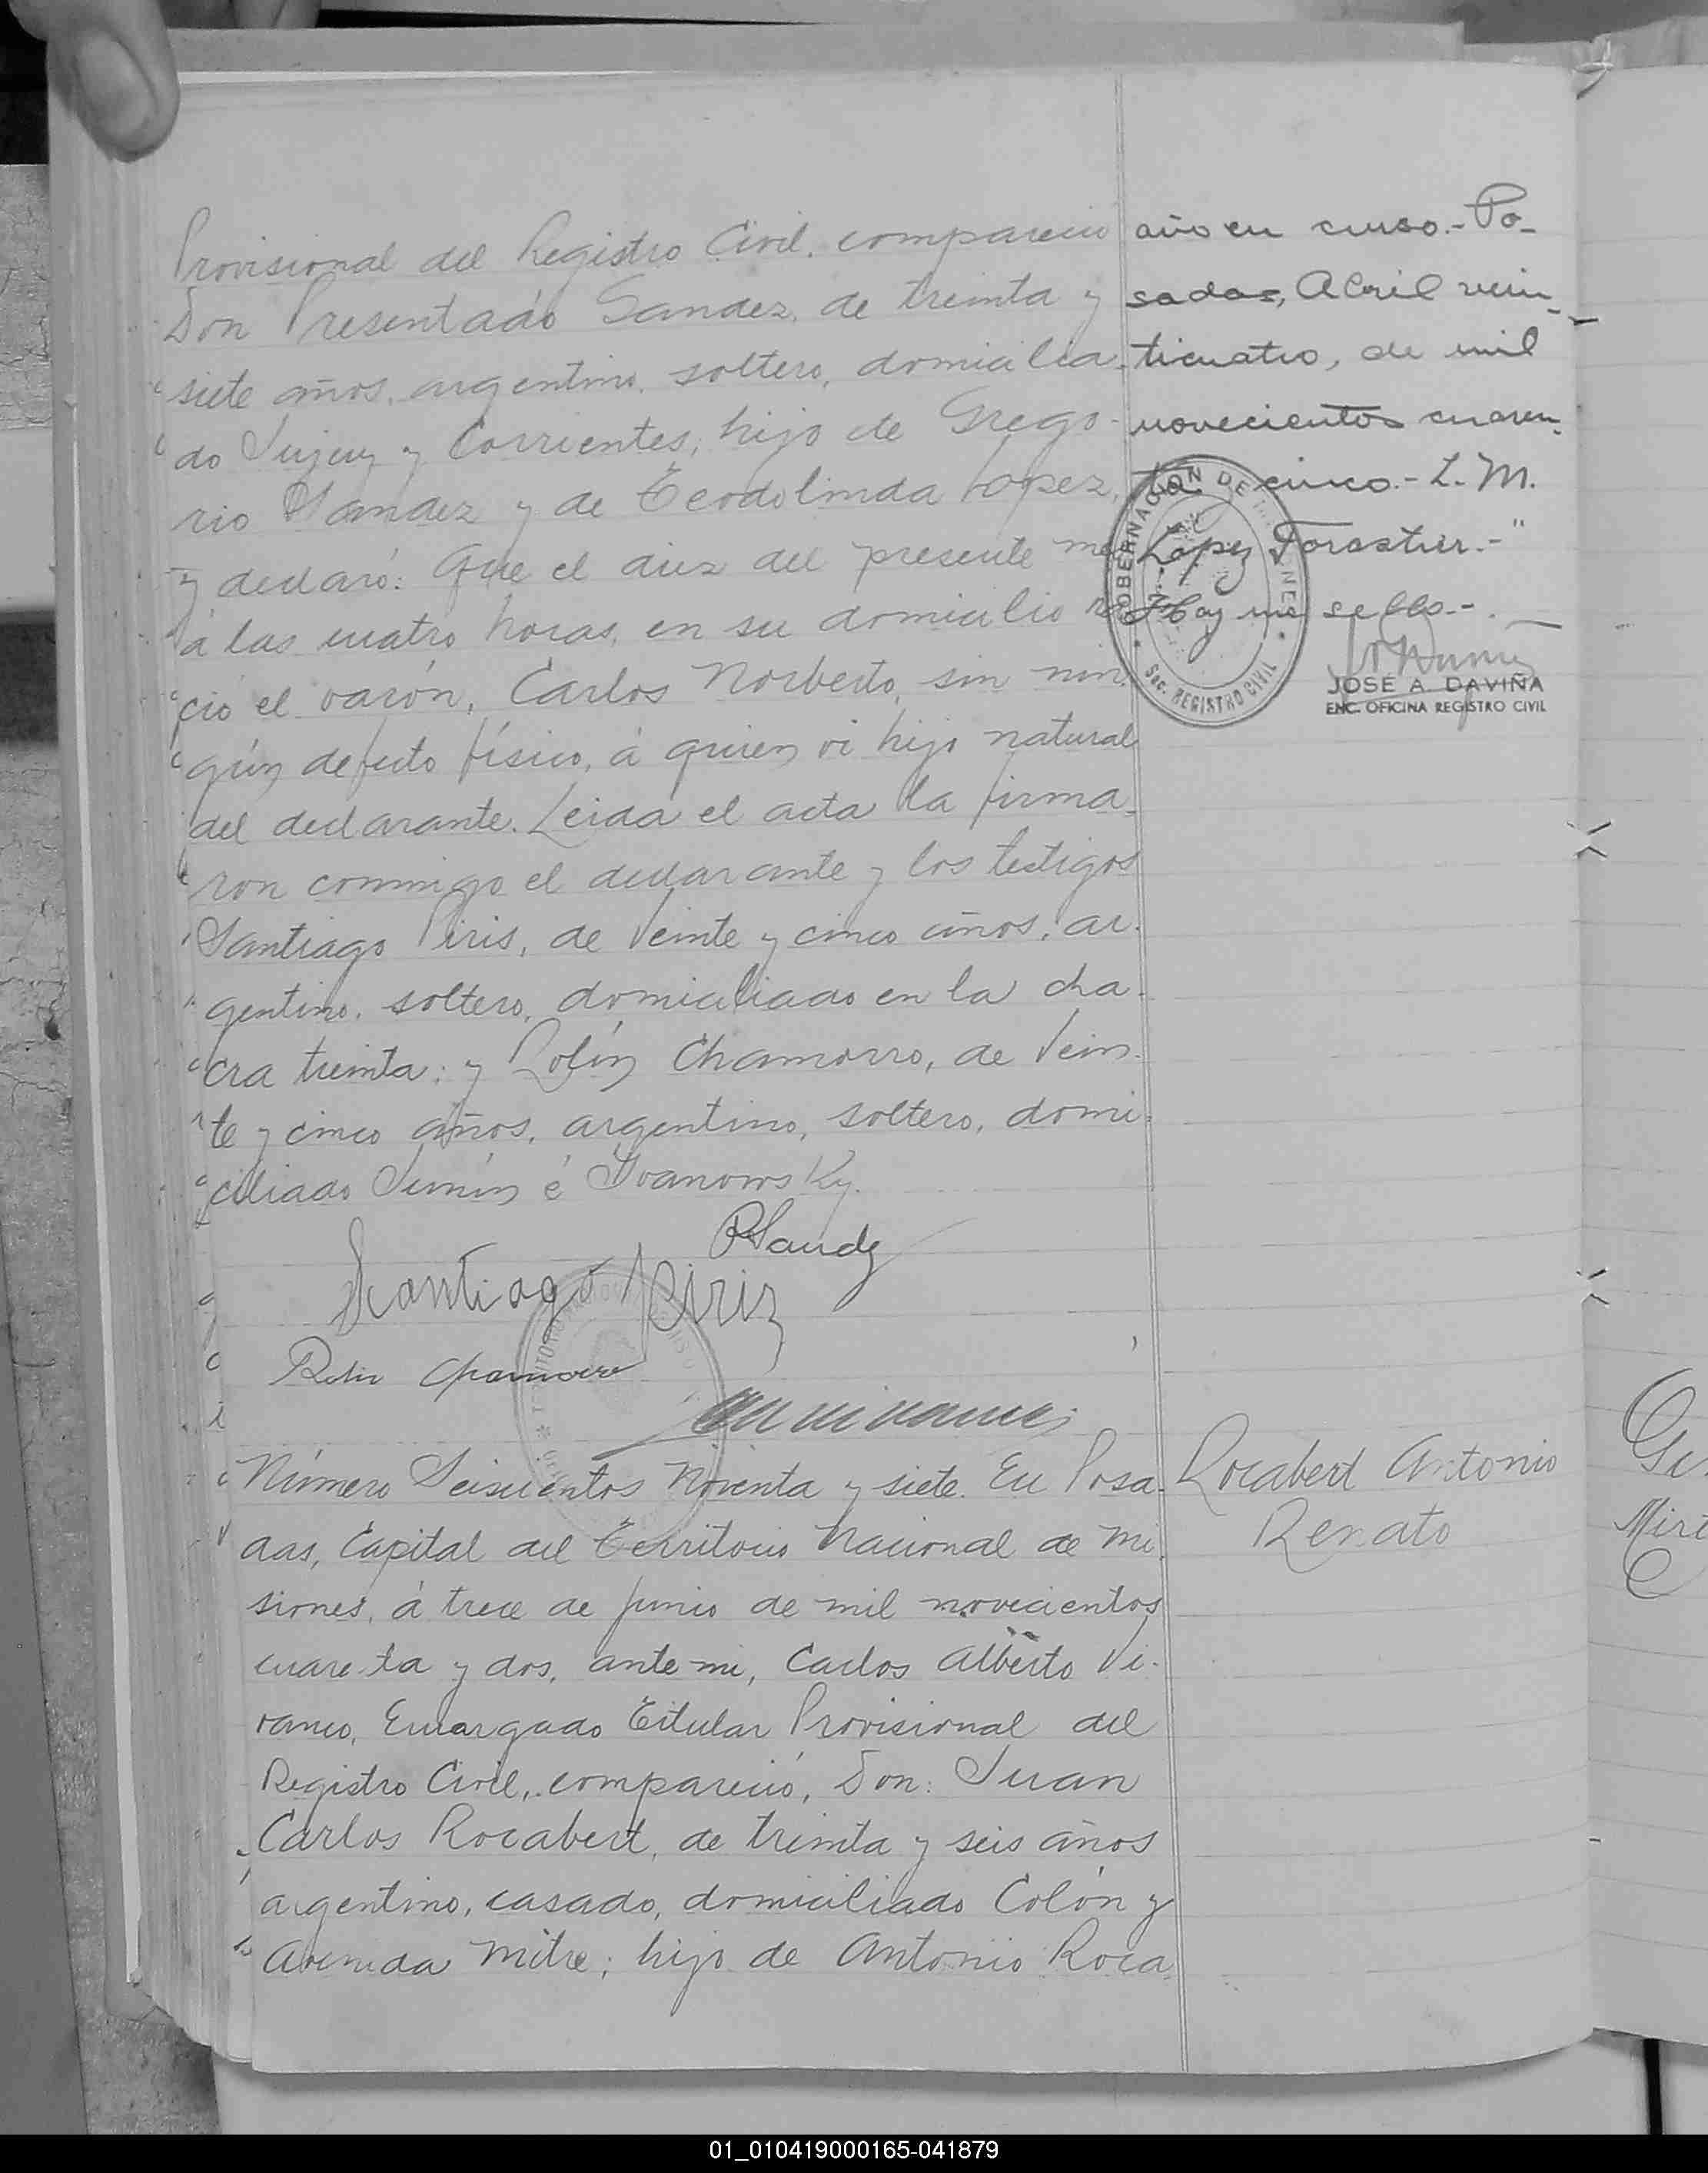 Provisional del Registro Civil, compareció
Don Presentado Sandez, de treinta y
siete años, argentino, soltero, domicilia-
do Jujuy y Corrientes; hijo de Grego-
rio Sandez y de Teodolinda Lopez,
y declaró: Que el diez del presente mes
á las cuatro horas, en su domicilio na
ció el varón, Carlos Norberto, sin nin
gún defecto físico, á quien vi hijo natural
del declarante. Leida el acta la firma-
ron conmigo el declarante y los testigos
Santiago Piris, de Veinte y cinco años, ar-
gentino, soltero, domiciliado en la cha-
cra treinta; y Rolín Chamorro, de Vein-
te y cinco años, argentino, soltero, domi-
ciliado Junín é Ivanowsky.
PSandz
Santiago Piriz
Rolin Chamorro
Número Seiscientos Noventa y siete. En Posa-
das, Capital del Territorio Nacional de Mi
siones, á trece de junio de mil novecientos
cuare ta y dos, ante mi, Carlos Alberto Vi-
vanco, Encargado Titular Provisional del
Registro Civil, compareció, Don: Juan
Carlos Rocabert, de treinta y seis años
argentino, casado, domiciliado Colón y
Avenida Mitre; hijo de Antonio Roca
año en curso.- Po-
sadas, Abril vein-
ticuatro, de mil
novecientos cuaren-
ta cinco.- L. M.
Lopez Forastier.-"
Hay un sello.-
GOBERNACION DE MISIONES
Sec. REGISTRO CIVIL
JOSÉ A. DAVIÑA
ENC. OFICINA REGISTRO CIVIL
Rocabert Antonio
Renato
01_010419000165-041879